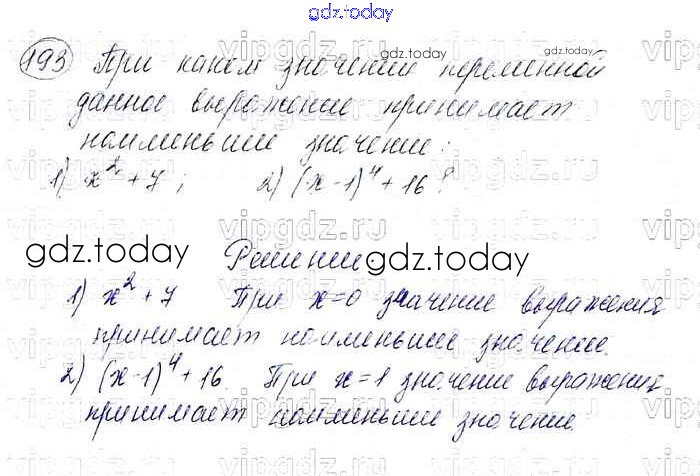 gdz.today
193 При каком значении переменной
данное выражение принимает
наименьшее значение:
1) x² + 7; 2) (x - 1)⁴ + 16?
Решение
1) x² + 7 При x = 0 значение выражения
принимает наименьшее значение.
2) (x - 1)⁴ + 16. При x = 1 значение выражения
принимает наименьшее значение.
gdz.today
gdz.today
gdz.today
gdz.today
gdz.today